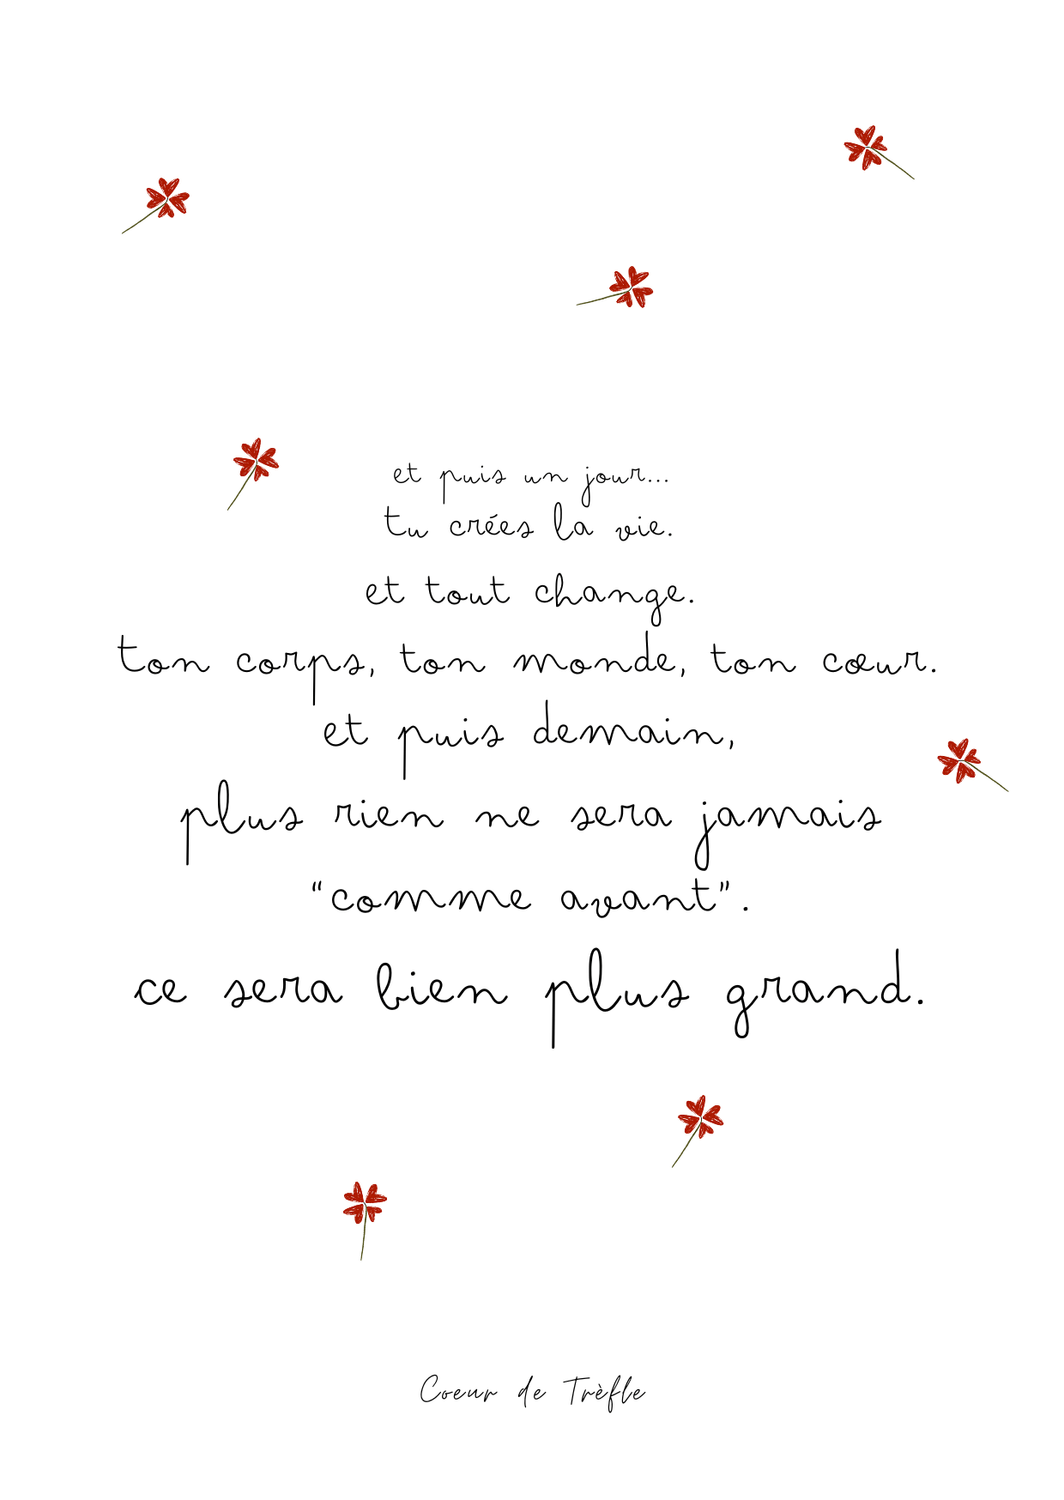 et puis un jour...
tu crées la vie.
et tout change.
ton corps, ton monde, ton cœur.
et puis demain,
plus rien ne sera jamais
“comme avant”.
ce sera bien plus grand.
Coeur de Trèfle